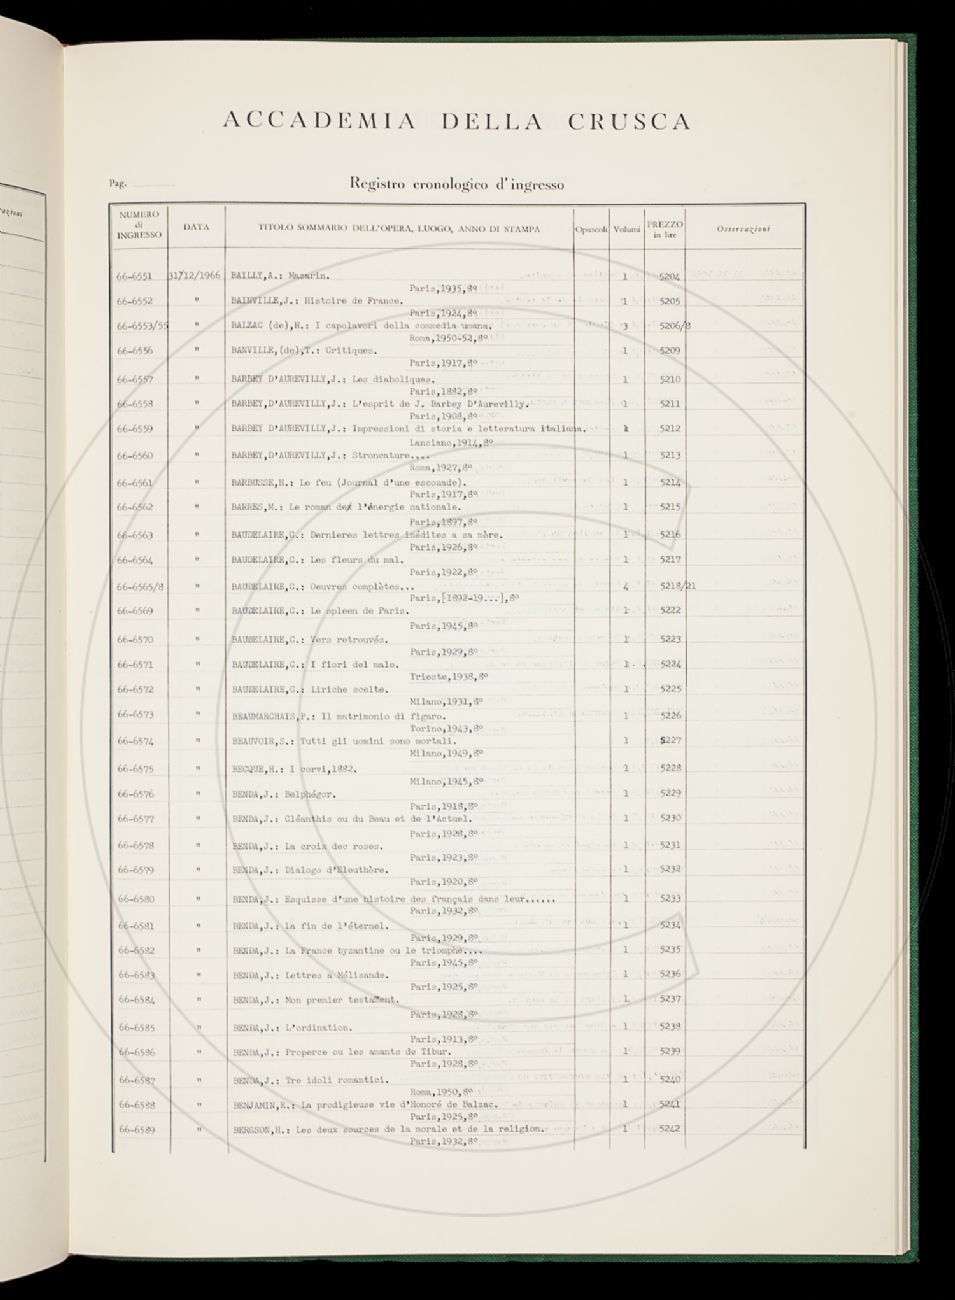 ACCADEMIA DELLA CRUSCA
Pag.
Registro cronologico d'ingresso
NUMERO di INGRESSO DATA TITOLO SOMMARIO DELL'OPERA, LUOGO, ANNO DI STAMPA Opuscoli Volumi PREZZO in lire Osservazioni
66-6551 31/12/1966 BAILLY,A.: Mazarin. 1 5204
Paris,1935,8º
66-6552 " BAINVILLE,J.: Histoire de France. 1 5205
Paris,1924,8º
66-6553/55 " BALZAC (de),H.: I capolavori della commedia umana. 3 5206/8
Roma,1950-52,8º
66-6556 " BANVILLE,(de),T.: Critiques. 1 5209
Paris,1917,8º
66-6557 " BARBEY D'AUREVILLY,J.: Les diaboliques. 1 5210
Paris,1882,8º
66-6558 " BARBEY,D'AUREVILLY,J.: L'esprit de J. Barbey D'Aurevilly. 1 5211
Paris,1908,8º
66-6559 " BARBEY D'AUREVILLY,J.: Impressioni di storia e letteratura italiana. 1 5212
Lanciano,1914,8º
66-6560 " BARBEY,D'AUREVILLY,J.: Stroncature.... 1 5213
Roma,1927,8º
66-6561 " BARBUSSE,H.: Le feu (Journal d'une escouade). 1 5214
Paris,1917,8º
66-6562 " BARRES,M.: Le roman de l'énergie nationale. 1 5215
Paris,1897,8º
66-6563 " BAUDELAIRE,C.: Dernieres lettres inédites a sa mère. 1 5216
Paris,1926,8º
66-6564 " BAUDELAIRE,C.: Les fleurs du mal. 1 5217
Paris,1922,8º
66-6565/8 " BAUDELAIRE,C.: Oeuvres complètes... 4 5218/21
Paris,[1892-19...],8º
66-6569 " BAUDELAIRE,C.: Le spleen de Paris. 1 5222
Paris,1945,8º
66-6570 " BAUDELAIRE,C.: Vers retrouvés. 1 5223
Paris,1929,8º
66-6571 " BAUDELAIRE,C.: I fiori del male. 1 5224
Trieste,1938,8º
66-6572 " BAUDELAIRE,C.: Liriche scelte. 1 5225
Milano,1931,8º
66-6573 " BEAUMARCHAIS,P.: Il matrimonio di figaro. 1 5226
Torino,1943,8º
66-6574 " BEAUVOIR,S.: Tutti gli uomini sono mortali. 1 5227
Milano,1949,8º
66-6575 " BECQUE,H.: I corvi,1882. 1 5228
Milano,1945,8º
66-6576 " BENDA,J.: Belphégor. 1 5229
Paris,1918,8º
66-6577 " BENDA,J.: Cléanthis ou du Beau et de l'Actuel. 1 5230
Paris,1928,8º
66-6578 " BENDA,J.: La croix des roses. 1 5231
Paris,1923,8º
66-6579 " BENDA,J.: Dialogo d'Eleuthère. 1 5232
Paris,1920,8º
66-6580 " BENDA,J.: Esquisse d'une histoire des français dans leur...... 1 5233
Paris,1932,8º
66-6581 " BENDA,J.: la fin de l'éternel. 1 5234
Paris,1929,8º
66-6582 " BENDA,J.: La France byzantine ou le triomphe.... 1 5235
Paris,1945,8º
66-6583 " BENDA,J.: Lettres a Mélisande. 1 5236
Paris,1925,8º
66-6584 " BENDA,J.: Mon premier testament. 1 5237
Paris,1928,8º
66-6585 " BENDA,J.: L'ordination. 1 5238
Paris,1913,8º
66-6586 " BENDA,J.: Properce ou les amants de Tibur. 1 5239
Paris,1928,8º
66-6587 " BENDA,J.: Tre idoli romantici. 1 5240
Roma,1950,8º
66-6588 " BENJAMIN,R.: La prodigieuse vie d'Honoré de Balzac. 1 5241
Paris,1925,8º
66-6589 " BERGSON,H.: Les deux sources de la morale et de la religion. 1 5242
Paris,1932,8º